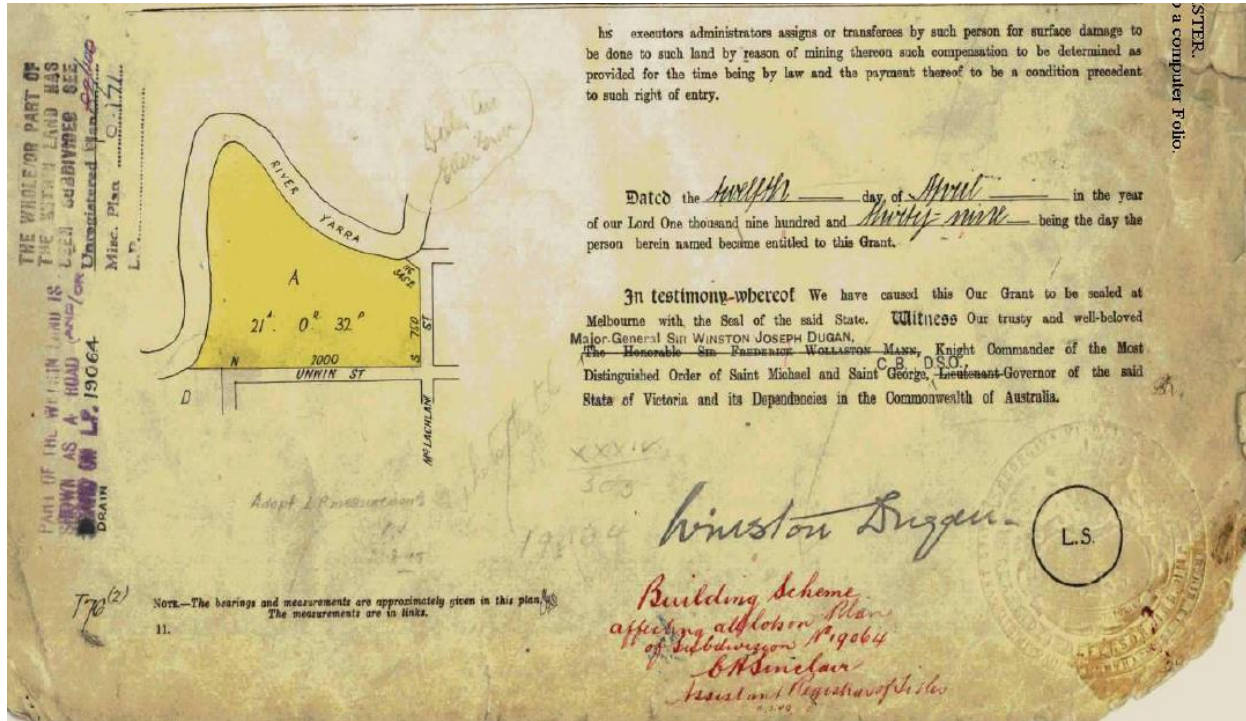 STER.
a computer Folio.
his executors administrators assigns or transferees by such person for surface damage to
be done to such land by reason of mining thereon such compensation to be determined as
provided for the time being by law and the payment thereof to be a condition precedent
to such right of entry.
Dated the twelfth day of April in the year
of our Lord One thousand nine hundred and thirty-nine being the day the
person herein named became entitled to this Grant.
In testimony whereof We have caused this Our Grant to be sealed at
Melbourne with the Seal of the said State. Witness Our trusty and well-beloved
Major-General Sir WINSTON JOSEPH DUGAN,
The Honorable Sir FREDERICK WOLLASTON MANN, Knight Commander of the Most
C.B., D.S.O.,
Distinguished Order of Saint Michael and Saint George, Lieutenant-Governor of the said
State of Victoria and its Dependencies in the Commonwealth of Australia.
XXXIV
303
Winston Dugan
L.S.
Building Scheme
affecting all lots on Plan
of Subdivision No 19064
Assistant Registrar of Titles
THE WHOLE/OR PART OF
THE WITHIN LAND HAS
BEEN SUBDIVIDED SEE
Unregistered Plan
Misc. Plan
L.P.
PART OF THE WITHIN LAND IS
SHOWN AS A ROAD AND/OR
ON L.P. 19064
DRAIN
RIVER
YARRA
A
21A. 0R 32P
750
ST
N
2000
S
UNWIN ST
D
McLACHLAN
Adopt
19064
T76(2)
NOTE.—The bearings and measurements are approximately given in this plan.
The measurements are in links.
11.